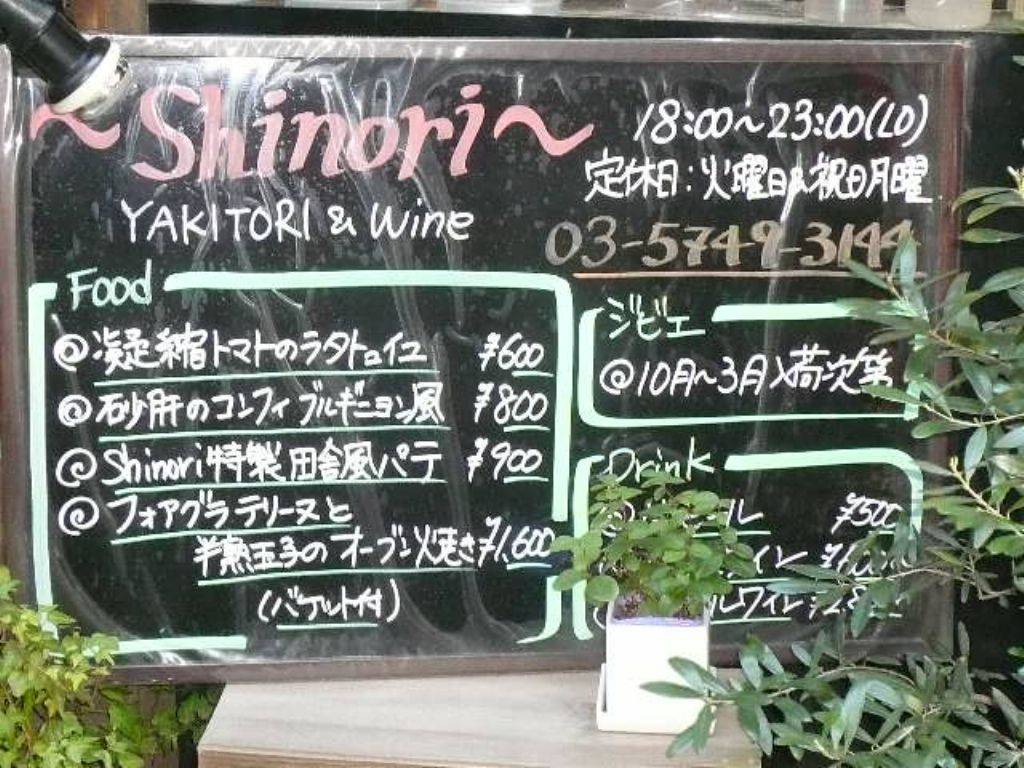 ~Shinori~
YAKITORI & Wine
18:00~23:00(LO)
定休日:火曜日&祝日月曜
03-5749-3144
Food
@凝縮トマトのラタトゥイユ ¥600
@砂肝のコンフィ ブルギニョン風 ¥800
@Shinori特製 田舎風パテ ¥900
@フォアグラ テリーヌと
半熟玉子のオーブン火焼き ¥1,600
(バケット付)
ジビエ
@10月~3月入荷次第
Drink
ル ¥500
イン
ルワイン